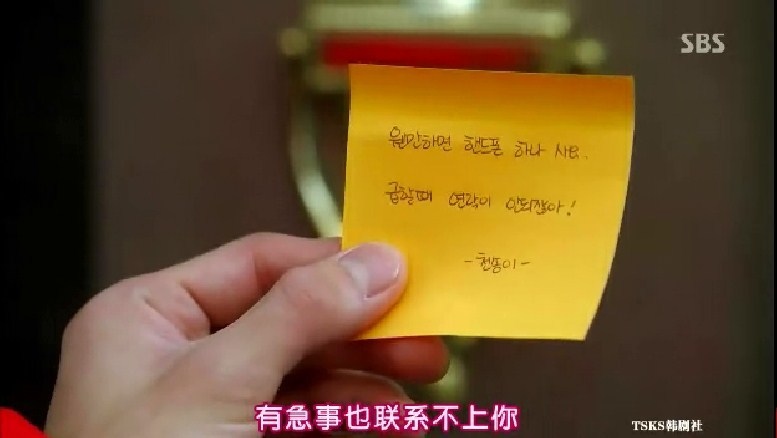 SBS
웬만하면 핸드폰 하나 사요.
급할때 연락이 안되잖아!
-천송이-
有急事也联系不上你
TSKS韩剧社